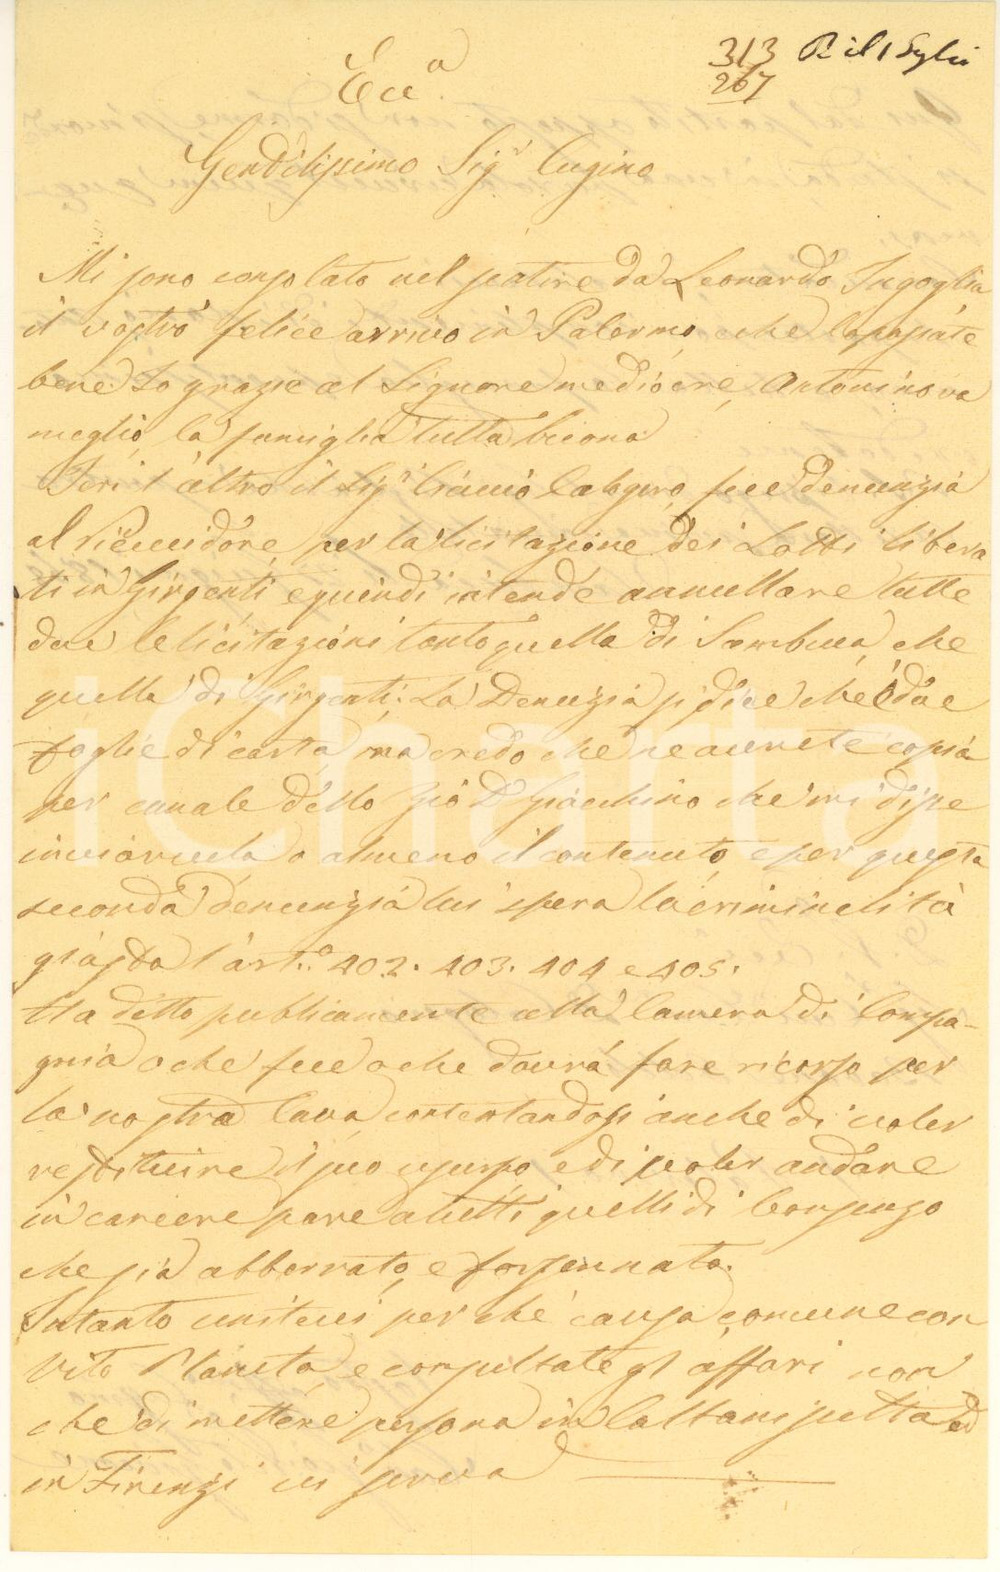 313 R il 1 Luglio
267
Ecc.a
Gentilissimo Sig.r Cugino
Mi sono consolato nel sentire da Leonardo Ingoglia
il vostro felice arrivo in Palermo, che la passate
bene. Io grazie al Signore mediocre, Antonino va
meglio, la famiglia tutta buona
Jeri l'altro il Sig.r Ciaccio Calogero, fece denunzia
al ricevidore, per la licitazione dei Lotti libera
ti in Girgenti, e quindi intende annullare tutte
due le licitazioni tanto quella di Sambuca, che
quella di Girgenti: La Denunzia si dice che è due
foglie di carta, ma credo che ne avrete copia
per canale dello Zio D. Giacchino che mi disse
inviarvela o almeno il contenuto, e per questa
seconda denunzia lui spera la criminalità
giusta l'art.o 402. 403. 404 e 405.
Ha detto publicamente alla Camera di Compa-
gnia o che fece o che dovrà fare ricorso per
la nostra Cava, contentandosi anche di voler
restituire il suo usurpo, e di voler andare
in carcere pare a tutti quelli di Consenzo
che sia abberrato, e forsennato.
Intanto unitevi per che causa comune con
Vito Planeta, e consultate gl'affari non
che di mettere persona in Caltanissetta ed
in Firenze vi serva
iCharta